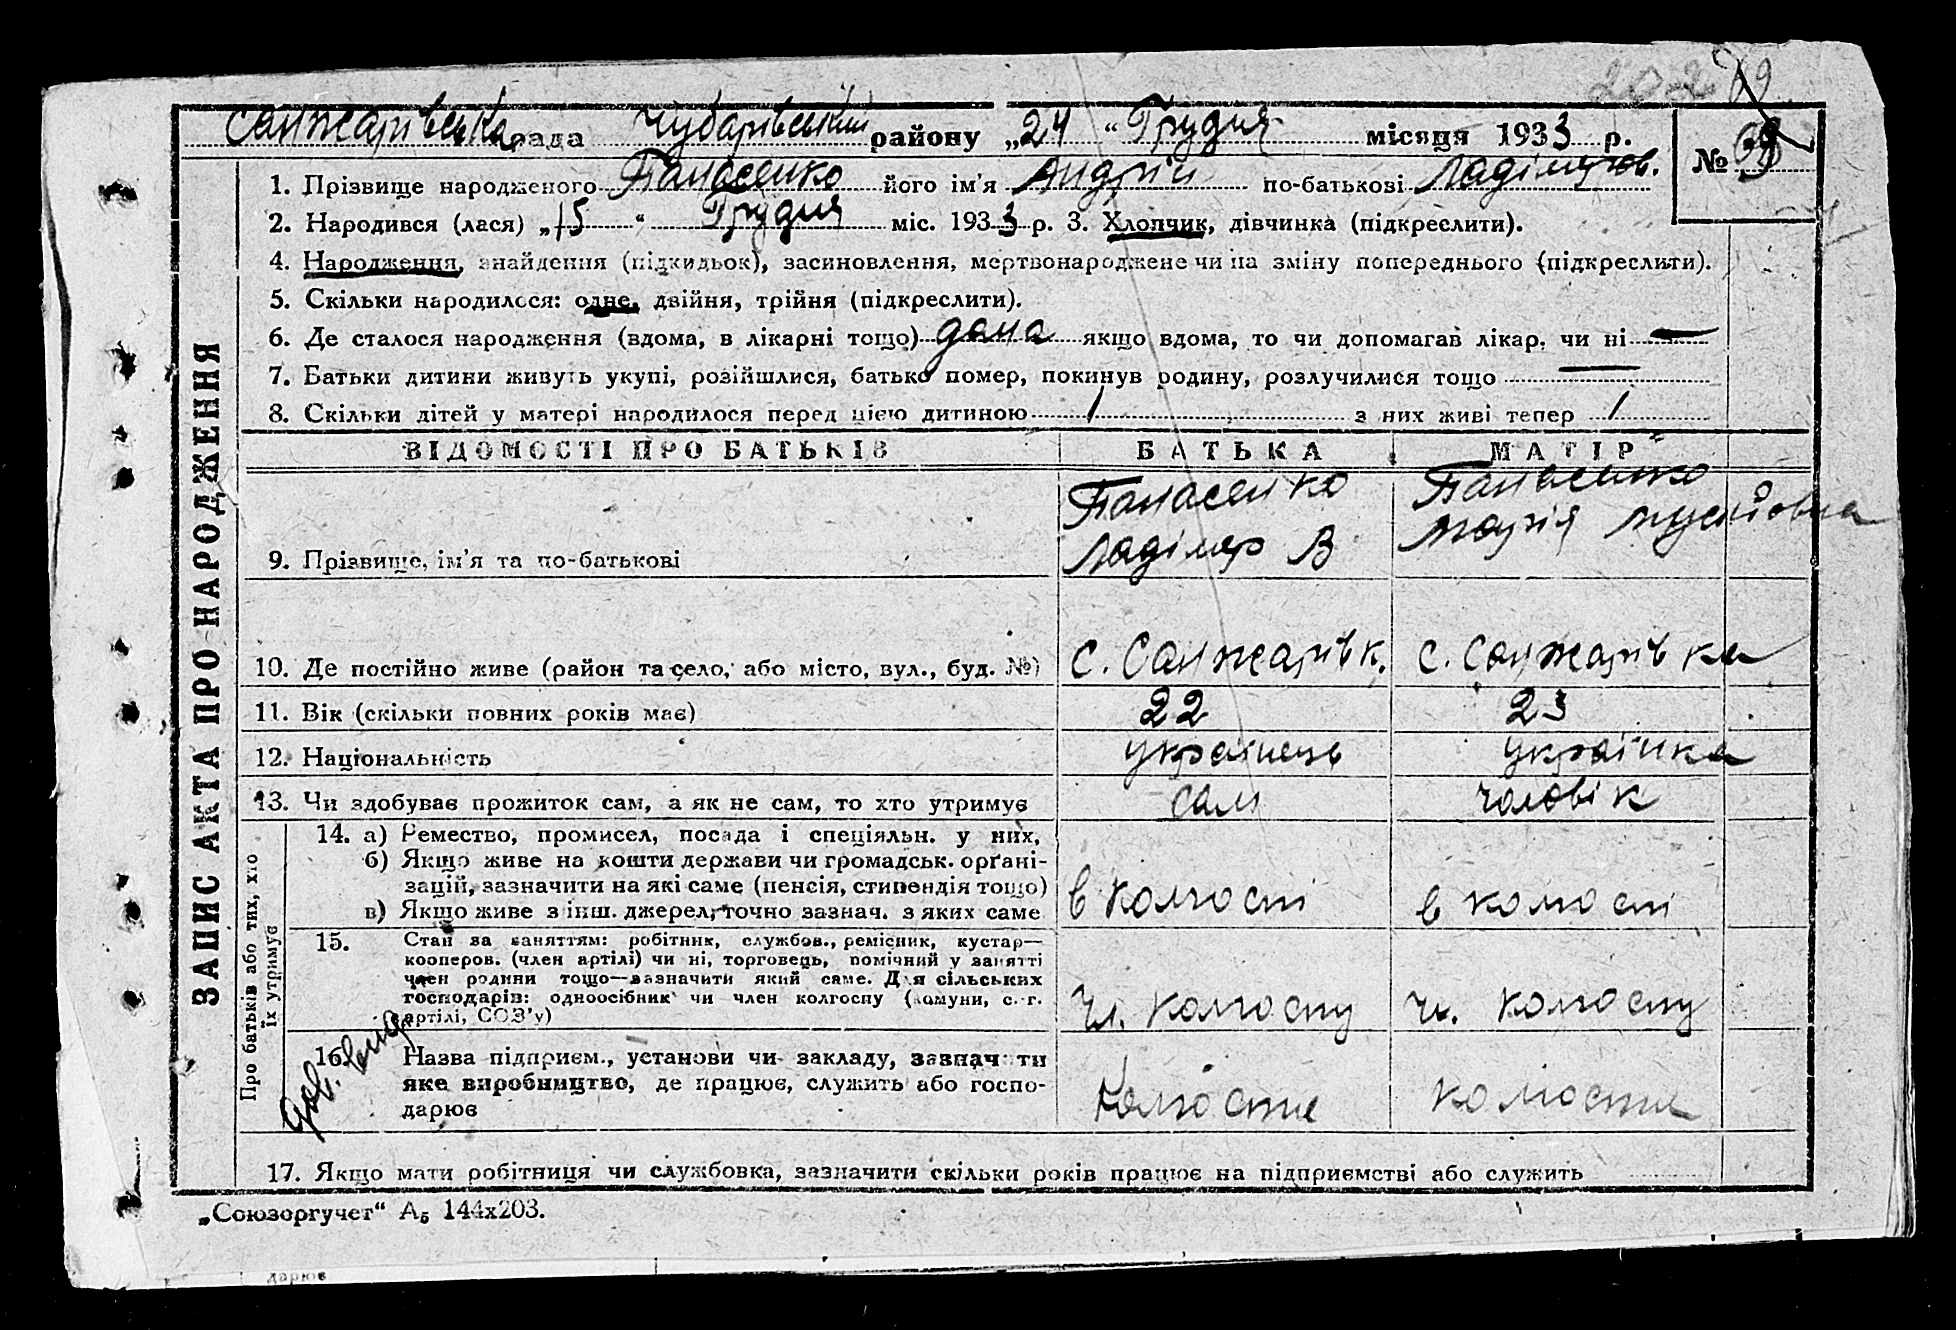 202 89
Санжарівська рада Чубарівський району „24 “ Грудня місяця 1933 р.
№
1. Прізвище народженого Панасенко його ім’я Андрій по-батькові Ладімиров.
2. Народився (лася) „15 “ Грудня міс. 1933 р. 3. Хлопчик, дівчинка (підкреслити).
4. Народження, знайдення (підкидьок), засиновлення, мертвонароджене чи на зміну попереднього (підкреслити).
5. Скільки народилося: одне, двійня, трійня (підкреслити).
6. Де сталося народження (вдома, в лікарні тощо) дома якщо вдома, то чи допомагав лікар, чи ні —
7. Батьки дитини живуть укупі, розійшлися, батько помер, покинув родину, розлучилися тощо —
8. Скільки дітей у матері народилося перед цією дитиною 1 з них живі тепер 1
ЗАПИС АКТА ПРО НАРОДЖЕННЯ
ВІДОМОСТІ ПРО БАТЬКІВ БАТЬКА МАТІР
Панасенко Панасенко
Ладімер В Марія Мусійовна
9. Прізвище, ім’я та по-батькові
10. Де постійно живе (район та село, або місто, вул., буд. №) с. Санжарівк. с. Санжарівка
11. Вік (скільки повних років має) 22 23
12. Національність українець українка
13. Чи здобуває прожиток сам, а як не сам, то хто утримує сам чоловік
Про батьків або тих, хто
їх утримує
14. а) Ремество, промисел, посада і спеціяльн. у них,
б) Якщо живе на кошти держави чи громадськ. орґані-
зацій, зазначити на які саме (пенсія, стипендія тощо)
в) Якщо живе з інш. джерел, точно зазнач. з яких саме
в колгоспі в колгоспі
15. Стан за заняттям: робітник, службов., ремісник, кустар—
кооперов. (член артілі) чи ні, торговець, помічний у занятті
член родини тощо—зазначити який саме. Для сільських
господарів: одноосібник чи член колгоспу (комуни, с.-г.
артілі, СОЗ’у)
чл. колгоспу чл. колгоспу
16. Назва підприєм., установи чи закладу, зазначити
яке виробництво, де працює, служить або госпо-
дарює
колгоспи колгоспи
17. Якщо мати робітниця чи службовка, зазначити скільки років працює на підприємстві або служить
„Союзоргучет“ А₅ 144х203.
дарює